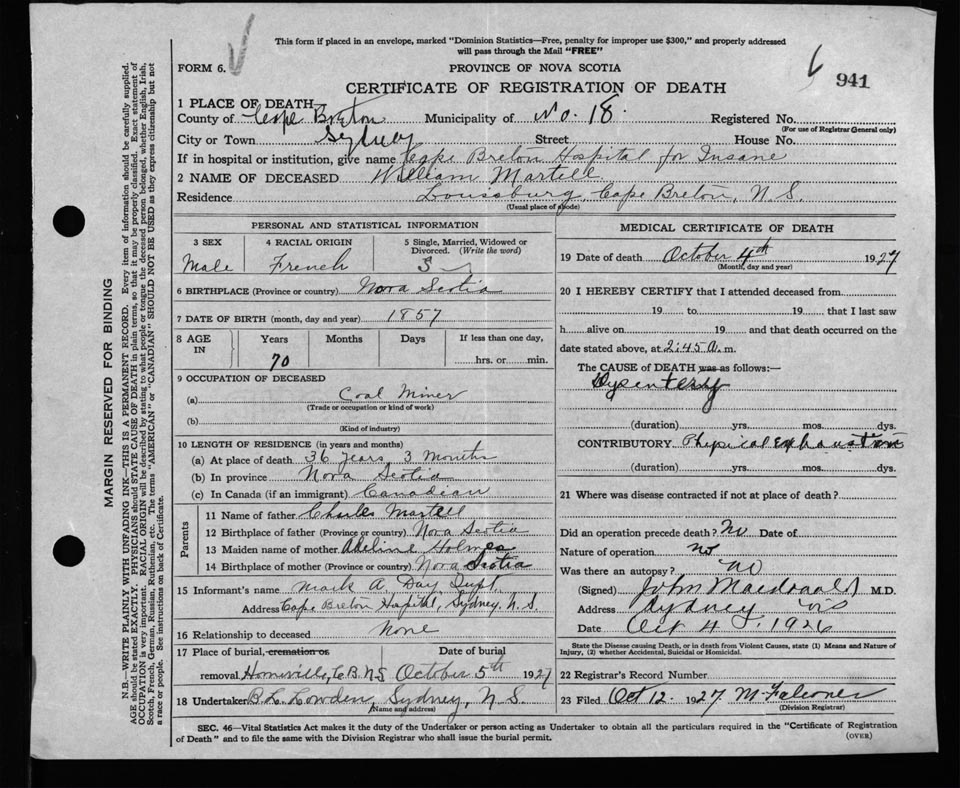 This form if placed in an envelope, marked "Dominion Statistics—Free, penalty for improper use $300," and properly addressed
will pass through the Mail "FREE"
FORM 6.
PROVINCE OF NOVA SCOTIA
941
CERTIFICATE OF REGISTRATION OF DEATH
1 PLACE OF DEATH
County of Cape Breton Municipality of No. 18. Registered No.
(For use of Registrar General only)
City or Town Sydney Street House No.
If in hospital or institution, give name Cape Breton Hospital for Insane
2 NAME OF DECEASED William Martell
Residence Louisburg, Cape Breton, N.S.
(Usual place of abode)
PERSONAL AND STATISTICAL INFORMATION
3 SEX 4 RACIAL ORIGIN 5 Single, Married, Widowed or Divorced. (Write the word)
Male French S
6 BIRTHPLACE (Province or country) Nova Scotia
7 DATE OF BIRTH (month, day and year) 1857
8 AGE IN Years Months Days If less than one day,
70 hrs. or min.
9 OCCUPATION OF DECEASED
(a) Coal Miner
(Trade or occupation or kind of work)
(b)
(Kind of industry)
10 LENGTH OF RESIDENCE (in years and months)
(a) At place of death 36 years 3 Months
(b) In province Nova Scotia
(c) In Canada (if an immigrant) Canadian
Parents
11 Name of father Charles Martell
12 Birthplace of father (Province or country) Nova Scotia
13 Maiden name of mother Adeline Holmes
14 Birthplace of mother (Province or country) Nova Scotia
15 Informant's name Mark A. Day, Supt.
Address Cape Breton Hospital, Sydney, N.S.
16 Relationship to deceased None
17 Place of burial, cremation or Date of burial
removal Homeville, C.B. N.S. October 5th 1927
18 Undertaker B. L. Lowden, Sydney, N.S.
(Name and address)
MEDICAL CERTIFICATE OF DEATH
19 Date of death October 4th 1927
(Month, day and year)
20 I HEREBY CERTIFY that I attended deceased from
19 to 19 that I last saw
h alive on 19 and that death occurred on the
date stated above, at 2:45 a. m.
The CAUSE of DEATH was as follows:—
Dysentery
(duration) yrs. mos. dys.
CONTRIBUTORY Physical Exhaustion
(duration) yrs. mos. dys.
21 Where was disease contracted if not at place of death?
Did an operation precede death? No Date of
Nature of operation no
Was there an autopsy? no
(Signed) John Macdonald M.D.
Address Sydney
Date Oct 4, 1926
State the Disease causing Death, or in death from Violent Causes, state (1) Means and Nature of
Injury, (2) whether Accidental, Suicidal or Homicidal.
22 Registrar's Record Number
23 Filed Oct 12 1927 M. Falconer
(Division Registrar)
SEC. 46—Vital Statistics Act makes it the duty of the Undertaker or person acting as Undertaker to obtain all the particulars required in the "Certificate of Registration
of Death" and to file the same with the Division Registrar who shall issue the burial permit.
(OVER)
MARGIN RESERVED FOR BINDING
N.B.—WRITE PLAINLY WITH UNFADING INK—THIS IS A PERMANENT RECORD. Every item of information should be carefully supplied.
AGE should be stated EXACTLY. PHYSICIANS should STATE CAUSE OF DEATH in plain terms, so that it may be properly classified. Exact statement of
OCCUPATION is very important. RACIAL ORIGIN will be described by stating to what people or tongue the deceased person belonged, whether English, Irish,
Scotch, French, German, Russian, Ruthenian, etc. The terms "AMERICAN" or "CANADIAN" SHOULD NOT BE USED as they express citizenship but not
a race or people. See instructions on back of Certificate.